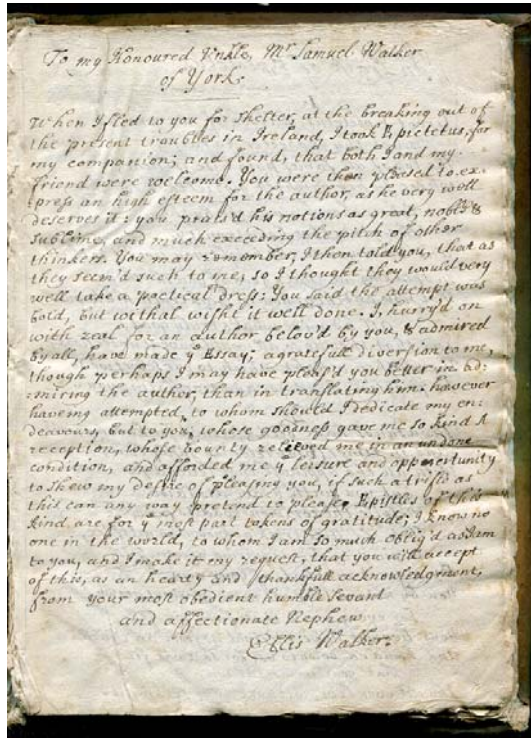 To my Honoured Vnkle, Mr Samuel Walker
of York.
When I fled to you for shelter, at the breaking out of
the present troubles in Ireland, I took Epictetus, for
my companion; and found, that both I and my
friend were welcome. You were then pleased to ex-
press an high esteem for the author, as he very well
deserves it; you prais'd his notions as great, noble &
sublime, and much exceeding the pitch of other
thinkers. You may remember, I then told you, that as
they seem'd such to me, so I thought they would very
well take a poetical dress: You said the attempt was
bold, but withal wisht it well done. I, hurry'd on
with zeal for an author belov'd by you, & admired
by all, have made y Essay; a gratefull diversion to me,
though perhaps I may have pleas'd you better in ad:
miring the author, than in translating him. however
haveing attempted, to whom should I dedicate my en:
deavours, but to you, whose goodness gave me so kind A
reception, whose bounty relieved me in an undone
condition, and afforded me y leisure and opportunity
to shew my desire of pleasing you, if such a trifle as
this can any way pretend to please, Epistles of this
kind are for y most part tokens of gratitude; I know no
one in the world, to whom I am so much oblig'd as I am
to you, and I make it my request, that you will accept
of this, as an hearty and thankfull acknowledgment,
from your most obedient humble Sevant
and affectionate Nephew
Ellis Walker.